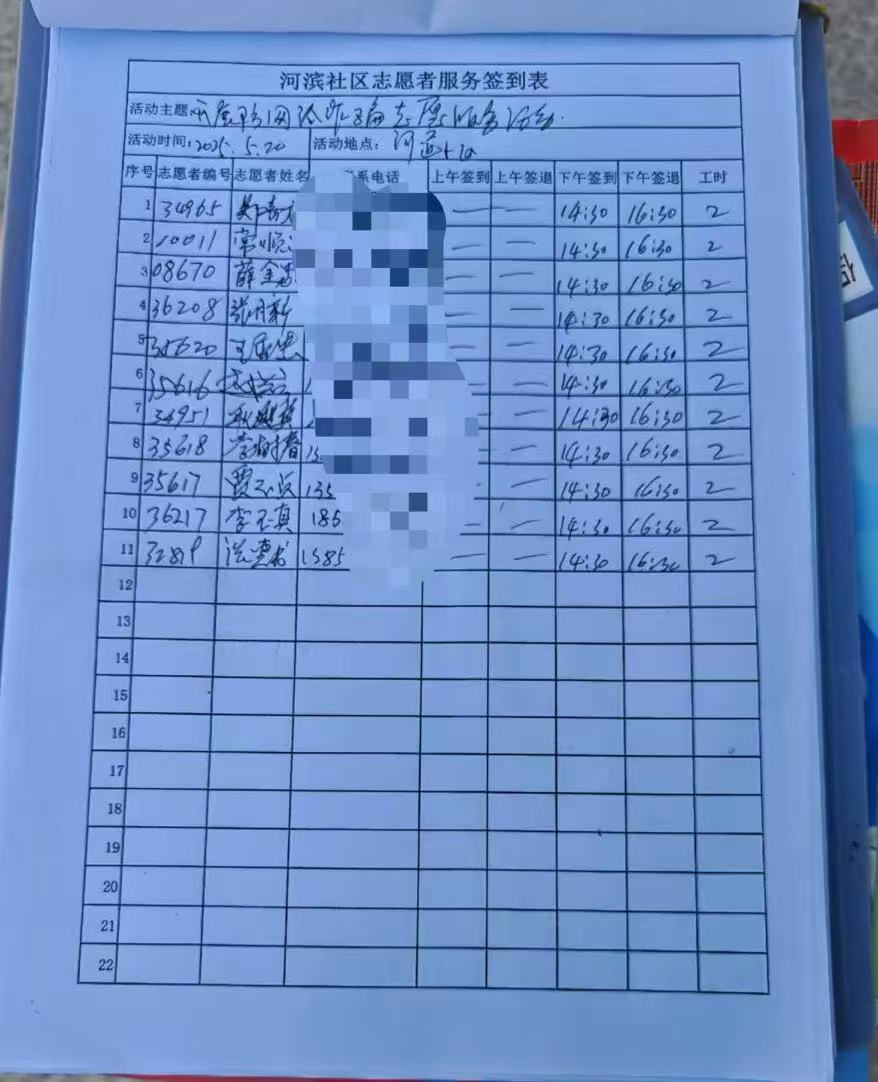 河滨社区志愿者服务签到表
活动主题: 志愿服务活动.
活动时间: 2025.5.20 活动地点: 河
序号 志愿者编号 志愿者姓名 系电话 上午签到 上午签退 下午签到 下午签退 工时
1 34965 — — 14:30 16:30 2
2 10011 常顺 — — 14:30 16:30 2
3 08670 薛金 — — 14:30 16:30 2
4 36208 张月新 — — 14:30 16:30 2
5 — — 14:30 16:30 2
6 35616 — — 14:30 16:30 2
7 34951 — — 14:30 16:30 2
8 35618 — — 14:30 16:30 2
9 35617 贾 135 — — 14:30 16:30 2
10 36217 李玉真 185 — — 14:30 16:30 2
11 32819 1385 — — 14:30 16:30 2
12
13
14
15
16
17
18
19
20
21
22